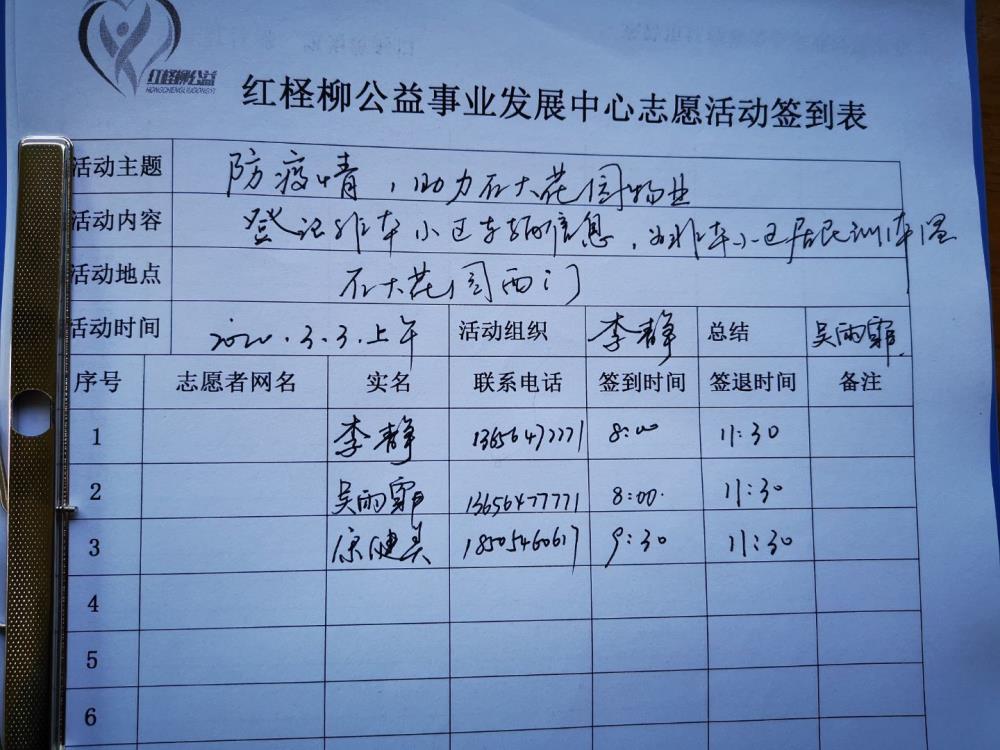 红柽柳公益
HONGCHENGLIUGONGYI
红柽柳公益事业发展中心志愿活动签到表
活动主题 防疫情,助力石大花园物业
活动内容 登记非本小区车辆信息,为非本小区居民测体温
活动地点 石大花园西门
活动时间 2020.3.3.上午 活动组织 李静 总结 吴雨霏
序号 志愿者网名 实名 联系电话 签到时间 签退时间 备注
1 李静 13656477771 8:00 11:30
2 吴雨霏 13656477771 8:00 11:30
3 健美 18505460617 9:30 11:30
4
5
6